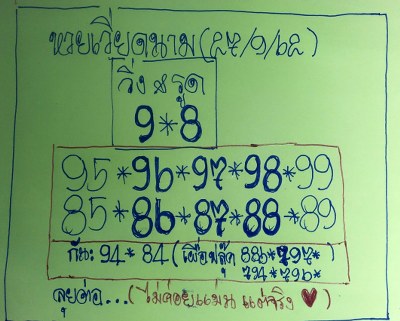 หวยเวียดนาม(27/9/62)
วิ่ง & รูด
9*8
95*96*97*98*99
85*86*87*88*89
กัน: 94* 84 (เผื่อฟลุ๊ค 886*797*
794*796*)
ลุยต่อ...(ไม่ค่อยแม่น แต่จริง ♥)